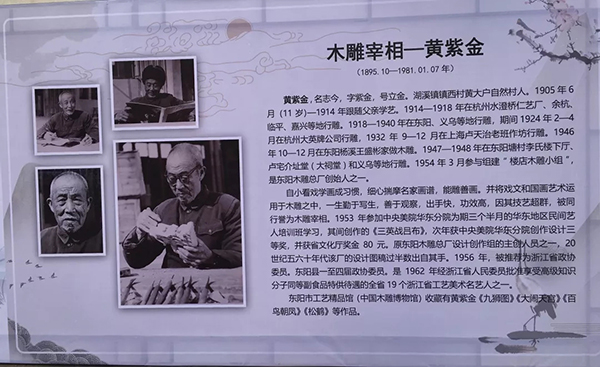 木雕宰相—黄紫金
（1895.10—1981.01.07 年）
黄紫金，名志今，字紫金，号立金。湖溪镇镇西村黄大户自然村人。1905 年 6
月（11 岁)—1914 年跟随父亲学艺。1914—1918 年在杭州水澄桥仁艺厂、余杭、
临平、嘉兴等地行雕。1918—1940 年在东阳、义乌等地行雕，期间 1924 年 2—4
月在杭州大英牌公司行雕，1932 年 9—12 月在上海卢天治老班作坊行雕。1946
年 10—12 月在东阳杨溪王盛彬家做木雕。1947—1948 年在东阳塘村李氏楼下厅、
卢宅介址堂（大祠堂）和义乌等地行雕。1954 年 3 月参与组建“楼店木雕小组”，
是东阳木雕总厂创始人之一。
自小看戏学画成习惯，细心揣摩名家画谱，能雕善画。并将戏文和国画艺术运
用于木雕之中，一生勤于写生，善于观察，出手快，功效高，因其技艺超群，被同
行誉为木雕宰相。1953 年参加中央美院华东分院为期三个半月的华东地区民间艺
人培训班学习，其间创作的《三英战吕布》，次年获中央美院华东分院创作设计三
等奖，并获省文化厅奖金 80 元。原东阳木雕总厂设计创作组的主创人员之一，20
世纪五六十年代该厂的设计图稿过半数出自其手。1956 年，被推荐为浙江省政协
委员。东阳县一至四届政协委员。是 1962 年经浙江省人民委员批准享受高级知识
分子同等副食品特供待遇的全省 19 个浙江省工艺美术名艺人之一。
东阳市工艺精品馆（中国木雕博物馆）收藏有黄紫金《九狮图》《大闹天宫》《百
鸟朝凤》《松鹤》等作品。